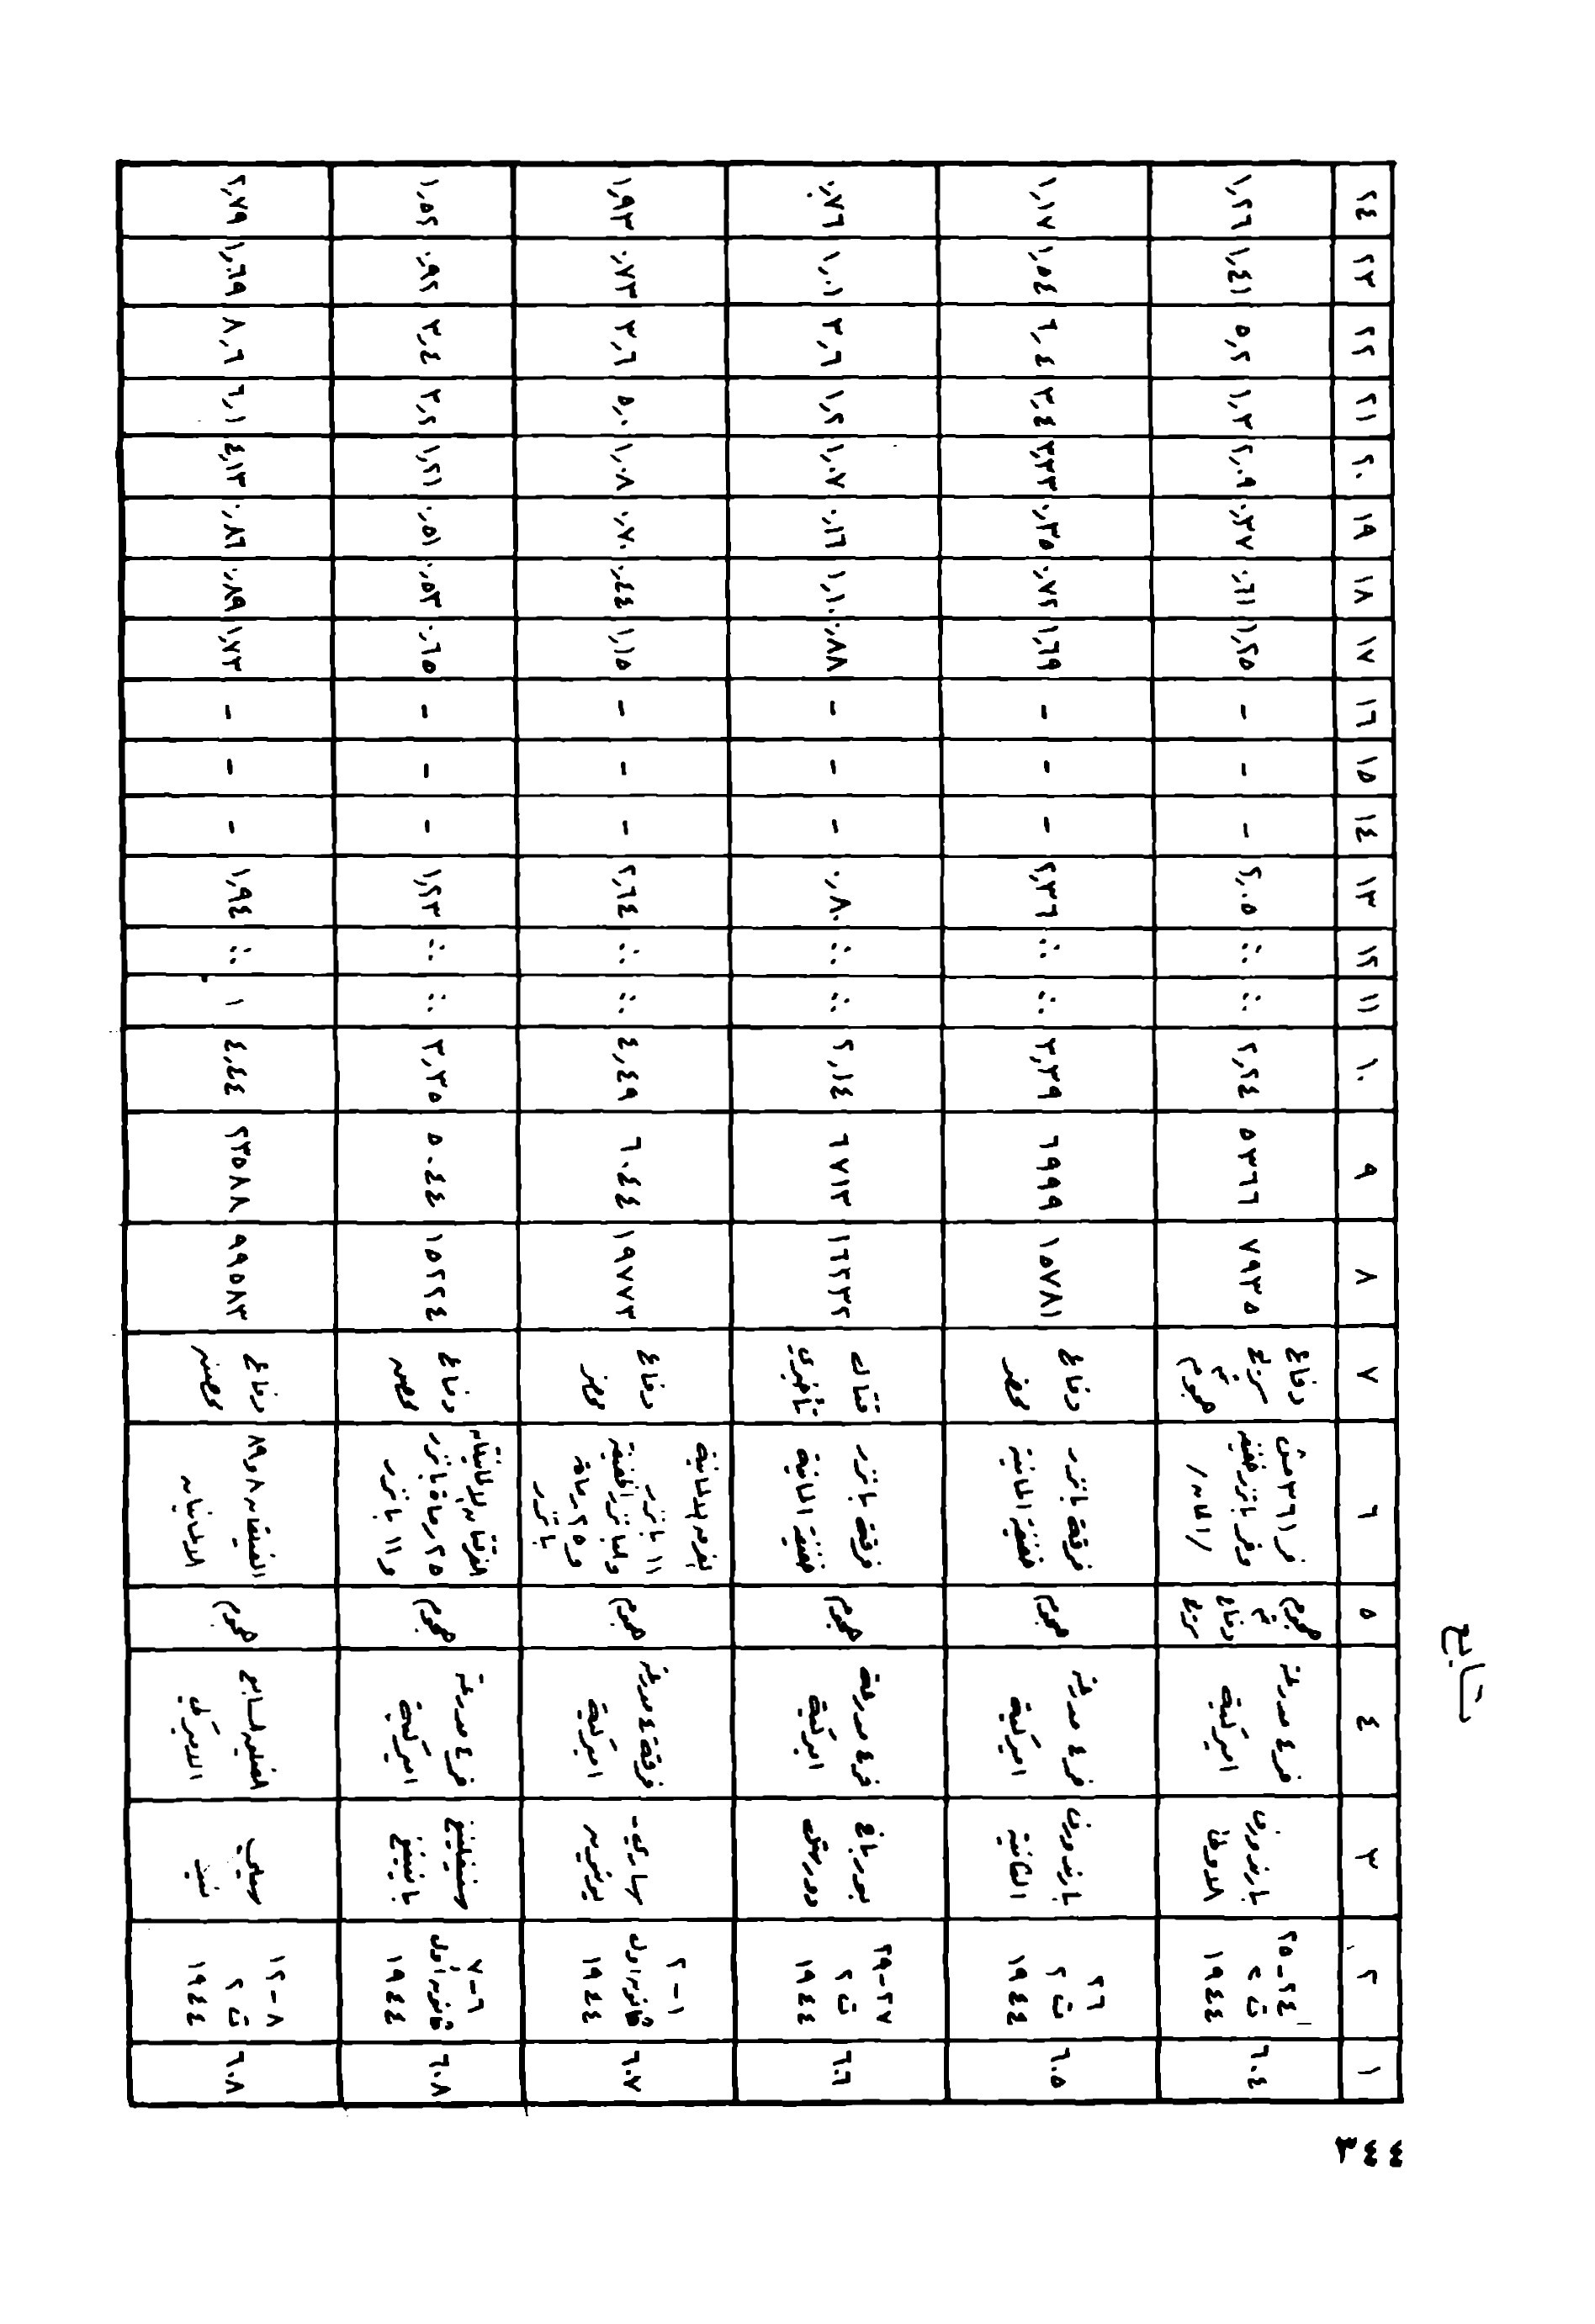 تابع
١ ٢ ٣ ٤ ٥ ٦ ٧ ٨ ٩ ١٠ ١١ ١٢ ١٣ ١٤ ١٥ ١٦ ١٧ ١٨ ١٩ ٢٠ ٢١ ٢٢ ٢٣ ٢٤
٦٠٤ ٢٤-٢٥ ت ٢ ١٩٤٤ بارندورف الاولى فر ٤ مدرعة اميركية هجوم ثم دفاع سريع فر ٣٦١ مش وفر بانزر خفيفة /المان/ دفاع سريع ثم هجوم ٧٩٣٥ ٥٣٦٦ ٢,٢٤ ∴ ∴ ٢,٠٥ - - - ١,٢٥ ٠,٦١ ٠,٣٧ ٢,٠٩ ١,٣ ٥,٢ ١,٤١ ١,٢٦
٦٠٥ ٢٦ ت ٢ ١٩٤٤ بارندورف الثانية فر ٤ مدرعة اميركية هجوم فرقة بانزر خفيفة المانية دفاع محضر ١٥٧٨١ ٦٩٩٩ ٣,٣٩ ∴ ∴ ٢,٣٦ - - - ١,٦٩ ٠,٧٢ ٠,٣٥ ٣,٣٣ ٣,٤ ٦,٤ ١,٥٤ ١,١٧
٦٠٦ ٢٧-٢٩ ت ٢ ١٩٤٤ بورباخ دورستل فر ٤ مدرعة اميركية هجوم فرقة بانزر خفيفة المانية قتال تأخيري ١٦٢٣٢ ٦٧١٣ ٢,١٤ ∴ ∴ ٠,٨٠ - - - ٠,٨٨ ١,١٠ ٠,١٦ ١,٠٧ ١,٢ ٣,٦ ١,٠١ ٠,٧٦
٦٠٧ ١-٢ كانون اول ١٩٤٤ ساري- يونيون فرقة ٤ مدرعة اميركية هجوم الفرق الالمانية ١١ بانزر والبانزر الخفيفة و٢٥ رماة بانزر دفاع محضر ١٩٧٧٣ ٦٠٤٤ ٤,٤٩ ∴ ∴ ٢,٦٤ - - - ١,١٥ ٠,٤٤ ٠,٧٠ ١,٠٨ ٥,٠ ٣,٦ ٠,٧٣ ١,٩٣
٦٠٨ ٦-٧ كانون أول ١٩٤٤ سينغلينغ بانينغ فر ٤ مدرعة اميركية هجوم الفرقتان الالمانيتان ٢٥ رماة بانزر و ١١ بانزر دفاع محصن ١٥٢٢٤ ٥٠٤٤ ٣,٣٥ ∴ ∴ ١,٢٣ - - - ٠,٦٥ ٠,٥٣ ٠,٥١ ١,٢١ ٣,٢ ٣,٤ ٠,٩٢ ١,٥٢
٦٠٨ ٨-١٢ ت ٢ ١٩٤٤ سيلي نييد الفيلق السابع الاميركي هجوم الفيلقان ٨ و ٨٩ الالمانيان دفاع محصن ٩٩٥٨٣ ٢٣٥٨٨ ٤,٤٤ ١ ∴ ١,٩٤ - - - ١,٧٣ ٠,٨٩ ٠,٨٦ ٤,١٣ ٦,١ ٨,٦ ١,٦٩ ٢,٧٩
٣٤٤